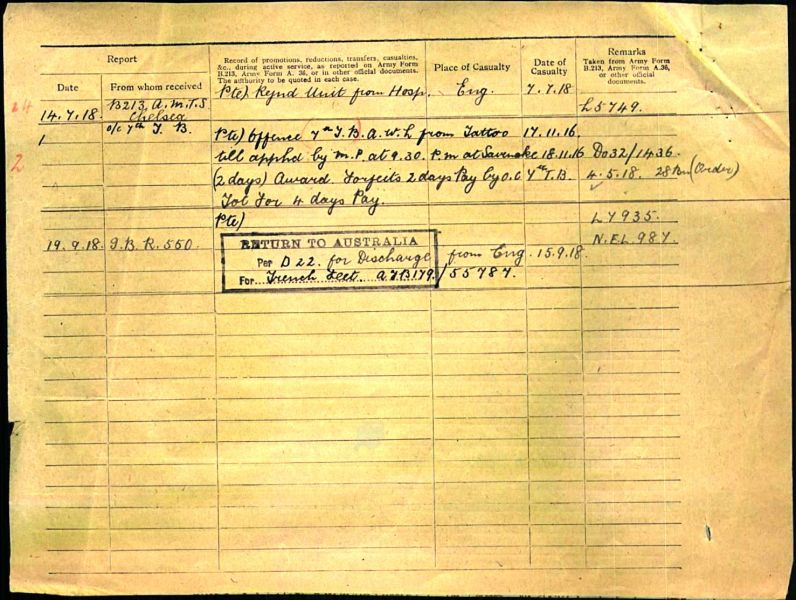 Report
Record of promotions, reductions, transfers, casualties, &c., during active service, as reported on Army Form B.213, Army Form A. 36, or in other official documents. The authority to be quoted in each case.
Place of Casualty
Date of Casualty
Remarks
Taken from Army Form B.213, Army Form A.36, or other official documents.
Date
From whom received
Pte) Rejnd Unit from Hosp. Eng. 7.7.18
14.7.18. B213, A.M.T.S L5749.
Chelsea
o/c 7th T. B. Pte) Offence 7th T.B. A.W.L from Tattoo 17.11.16.
1
till apphd by M.P. at 9.30. P.m at 18.11.16 Do32/1436.
2
(2 days) Award. Forfeits 2 days Pay by O.C 7th T.B. 4.5.18. (Order)
Tot For 4 days Pay.
Pte) L7935.
19.9.18. RETURN TO AUSTRALIA N.E.L 987.
Per D22. for Discharge from Eng. 15.9.18.
For Trench Feet. 179/55787.